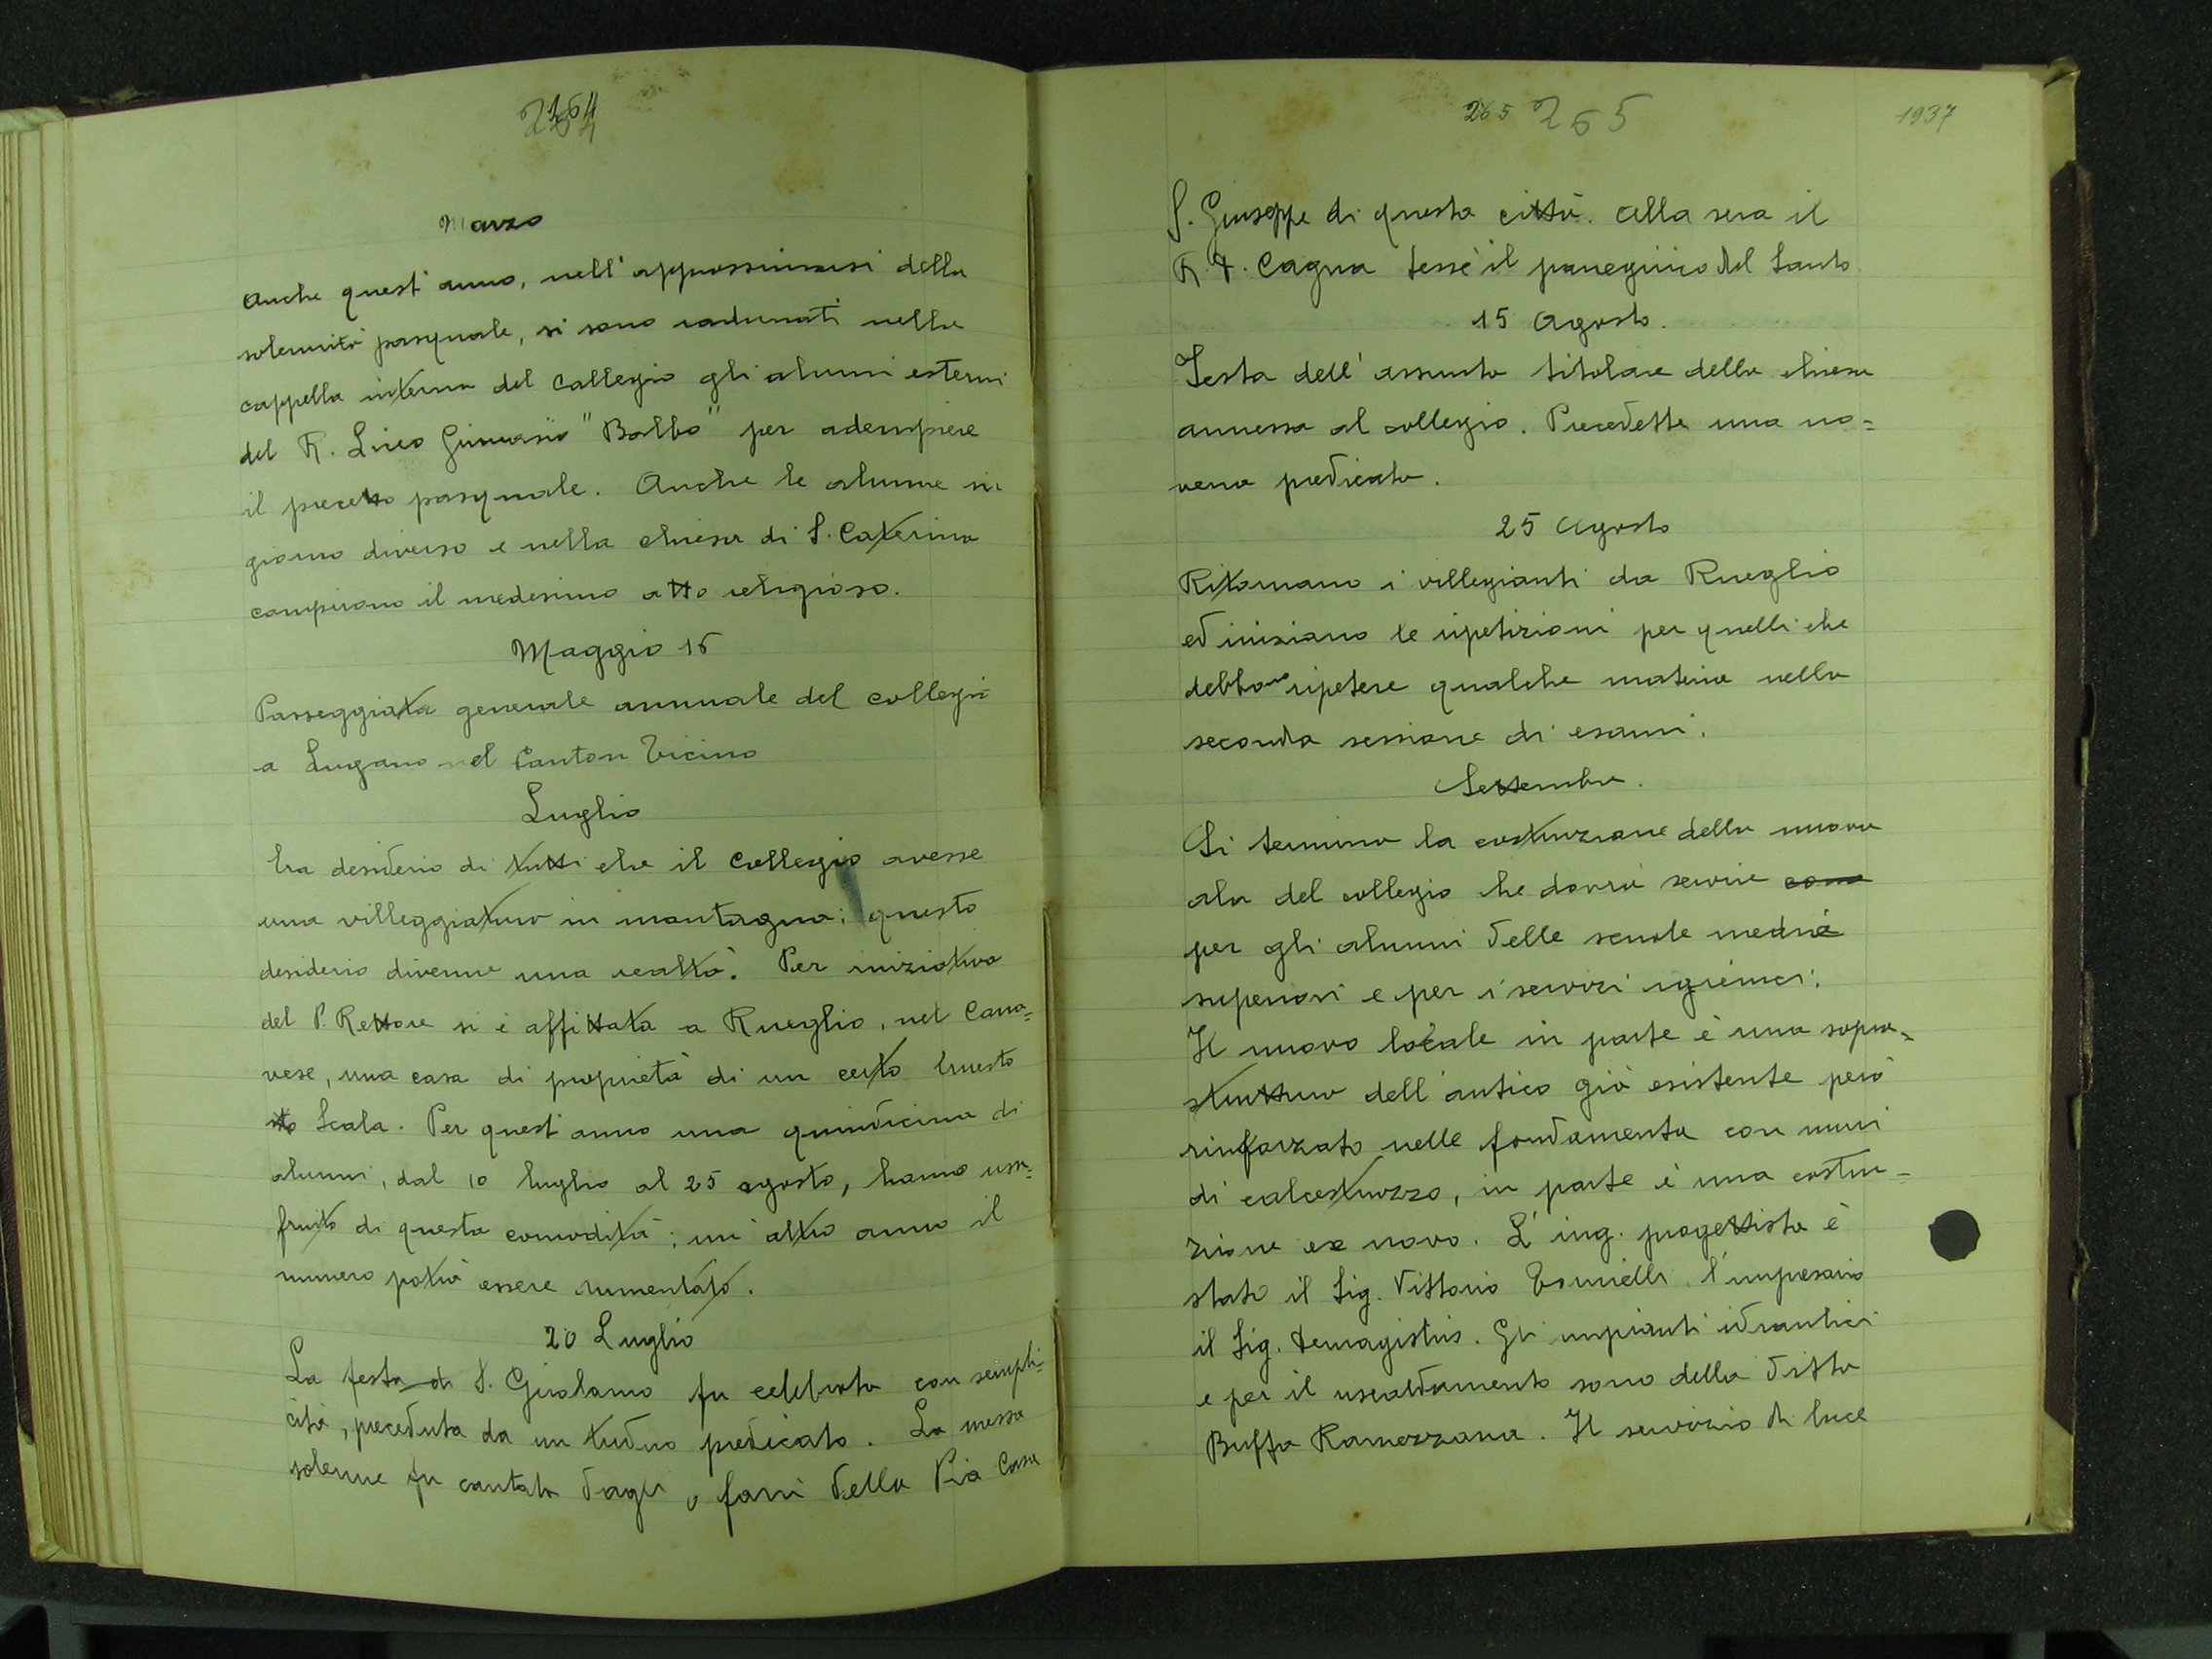 264
Marzo
Anche quest'anno, nell'approssimarsi della
solennità pasquale, si sono radunati nella
cappella interna del Collegio gli alunni esterni
del R. Liceo Ginnasio "Balbo" per adempiere
il precetto pasquale. Anche le alunne in
giorno diverso e nella chiesa di S. Caterina
compirono il medesimo atto religioso.
Maggio 16
Passeggiata generale annuale del collegio
a Lugano nel Canton Ticino
Luglio
Era desiderio di tutti che il Collegio avesse
una villeggiatura in montagna; questo
desiderio divenne una realtà. Per iniziativa
del P. Rettore si è affittata a Rueglio, nel Cana=
vese, una casa di proprietà di un certo Ernesto
Scala. Per quest'anno una quindicina di
alunni, dal 10 luglio al 25 agosto, hanno usu=
fruito di questa comodità; un altro anno il
numero potrà essere aumentato.
20 Luglio
La festa di S. Girolamo fu celebrata con sempli=
cità, preceduta da un triduo predicato. La messa
solenne fu cantata dagli o fani della Pia Casa
265 265
1937
S. Giuseppe di questa città. Alla sera il
R. P. Cagna tessé il panegirico del Santo.
15 Agosto.
Festa dell'assunta titolare della chiesa
annessa al collegio. Precedette una no=
vena predicata.
25 Agosto
Ritornano i villegianti da Rueglio
ed iniziano le ripetizioni per quelli che
debbono ripetere qualche materia nella
seconda sessione di esami.
Settembre.
Si termina la costruzione della nuova
ala del collegio che dovrà servire
per gli alunni delle scuole medie
superiori e per i servizi igienici.
Il nuovo locale in parte è una sopra=
struttura dell'antico già esistente però
rinforzato nelle fondamenta con muri
di calcestruzzo, in parte è una costru=
zione ex novo. L'ing. progettista è
stato il Sig. Vittorio Tornielli, l'impresario
il Sig. Demagistris. Gli impianti idraulici
e per il riscaldamento sono della Ditta
Buffa Ramezzana. Il servizio di luce